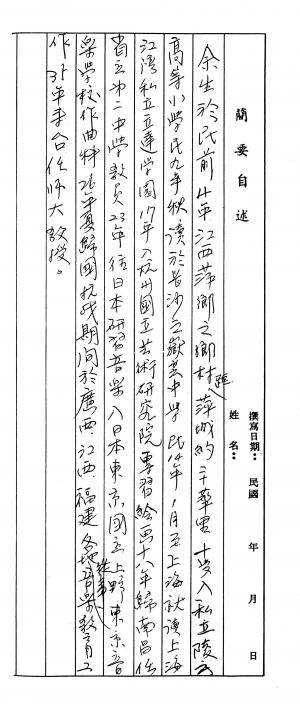 撰寫日期：民國 年 月 日
姓名：
簡要自述
余生於民前4年江西萍鄉之鄉村距萍城約三華里十岁入私立陵云
高等小学民九年秋讀於長沙之嶽雲中學民14年1月至上海就讀上海
江灣私立立達学園17年入杭州國立芸術研究院專習繪画十八年歸南昌任
省立第二中学教員23年往日本研習音樂入日本東京國立上野東京音
樂学校作曲科26年夏歸國抗战期间於廣西.江西.福建各地從事音樂教育工
作35年来台任师大教授。